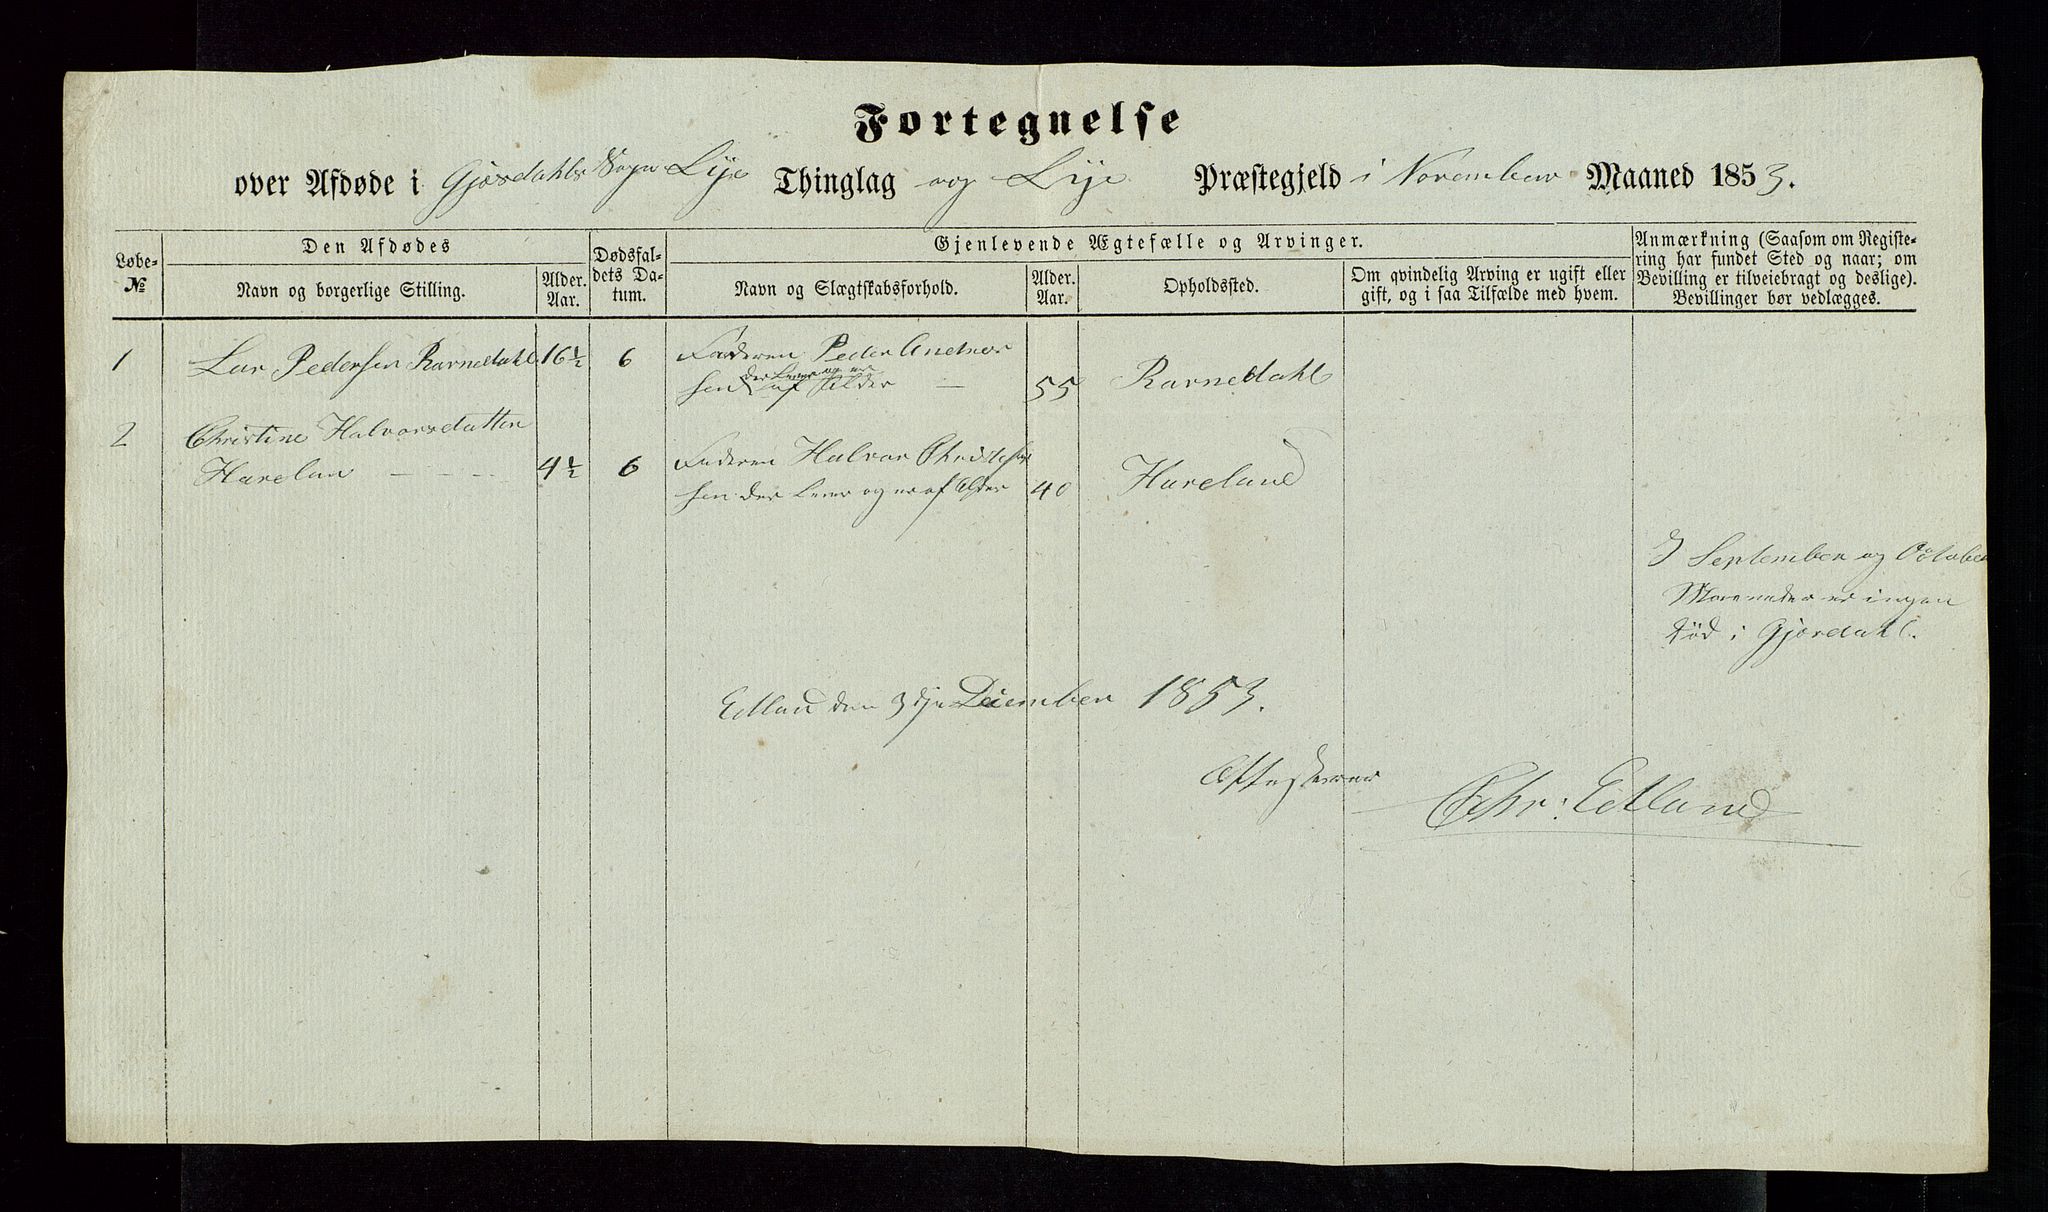 Fortegnelse
over Afdøde i Gjæsdahls Sogn Lye Thinglag og Lye Præstegjeld i November Maaned 1853.
Løbe-
№
Den Afdødes
Navn og borgerlige Stilling.
Alder.
Aar.
Dødsfal-
dets Da-
tum.
Gjenlevende Ægtefælle og Arvinger.
Navn og Slægtskabsforhold.
Alder.
Aar.
Opholdssted.
Om qvindelig Arving er ugift eller
gift, og i saa Tilfælde med hvem.
Anmærkning (Saasom om Registe-
ring har fundet Sted og naar; om
Bevilling er tilveiebragt og deslige).
Bevillinger bør vedlægges.
1 Lar Pedersen Ravnedahl 16½ 6 Faderen Peder Andreas
der Lever og er
sen af Alder — 55 Ravnedahl
2 Christine Halvorsdatten
Havelan - - - 4½ 6 Faderen Halvor
sen der Lever og er af Alder 40 Haveland
I September og October
Maaneder er ingen
død i Gjæsdahl.
Edland den 3die December 1853.
Attesterer
Chr: Edland